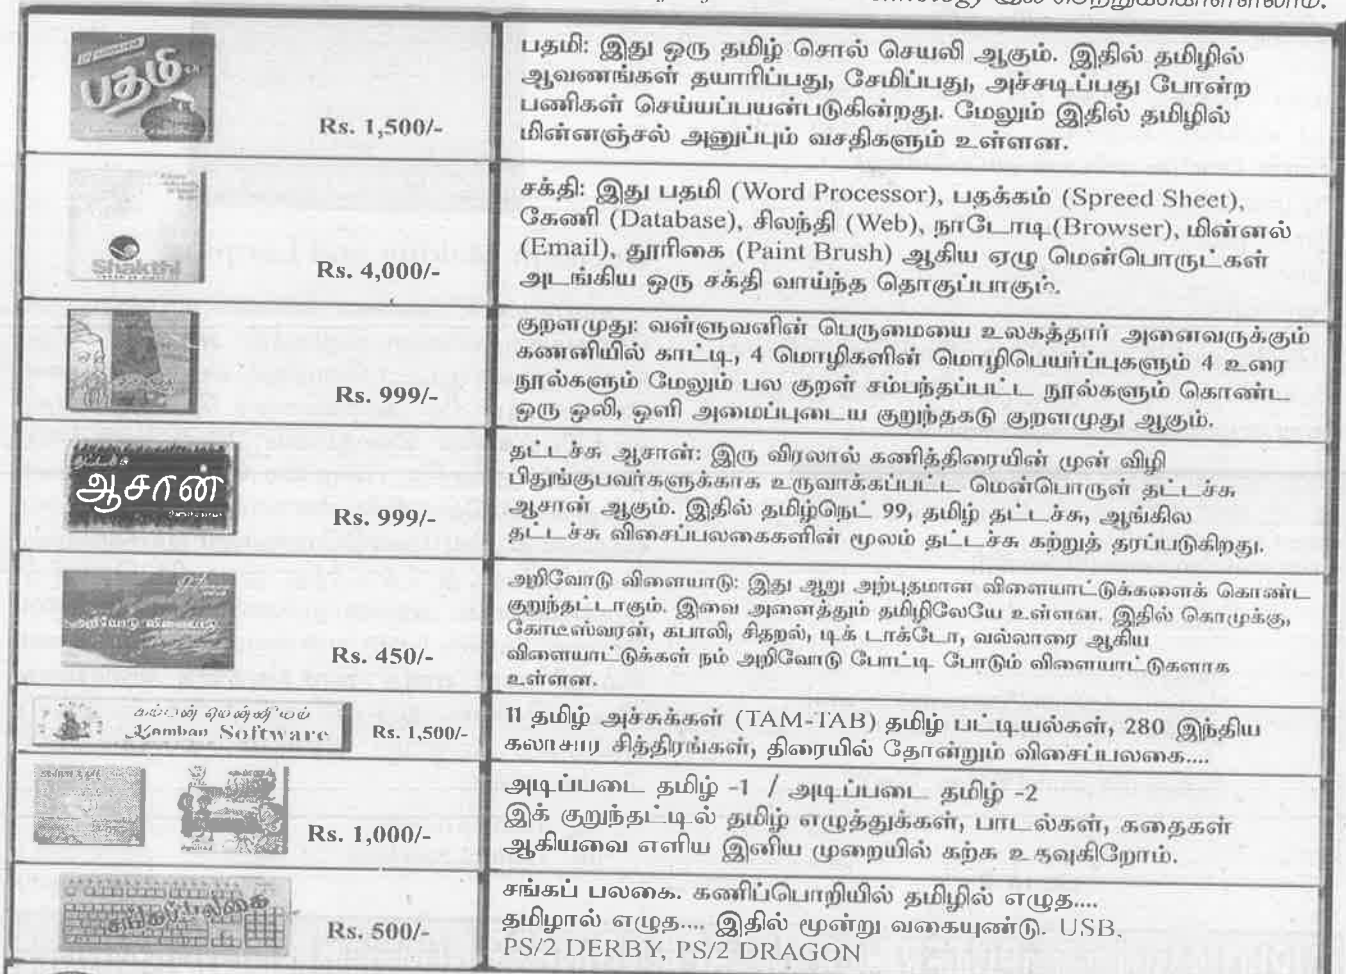 பெற்றுக்கொள்ளலாம்.
பதமி
Rs. 1,500/-
பதமி: இது ஒரு தமிழ் சொல் செயலி ஆகும். இதில் தமிழில்
ஆவணங்கள் தயாரிப்பது, சேமிப்பது, அச்சடிப்பது போன்ற
பணிகள் செய்யப்பயன்படுகின்றது. மேலும் இதில் தமிழில்
மின்னஞ்சல் அனுப்பும் வசதிகளும் உள்ளன.
Shakthi
Rs. 4,000/-
சக்தி: இது பதமி (Word Processor), பதக்கம் (Spreed Sheet),
கேணி (Database), சிலந்தி (Web), நாடோடி (Browser), மின்னல்
(Email), தூரிகை (Paint Brush) ஆகிய ஏழு மென்பொருட்கள்
அடங்கிய ஒரு சக்தி வாய்ந்த தொகுப்பாகும்.
Rs. 999/-
குறளமுது: வள்ளுவனின் பெருமையை உலகத்தார் அனைவருக்கும்
கணனியில் காட்டி, 4 மொழிகளின் மொழிபெயர்ப்புகளும் 4 உரை
நூல்களும் மேலும் பல குறள் சம்பந்தப்பட்ட நூல்களும் கொண்ட
ஒரு ஒலி, ஒளி அமைப்புடைய குறுந்தகடு குறளமுது ஆகும்.
தட்டச்சு
ஆசான்
Rs. 999/-
தட்டச்சு ஆசான்: இரு விரலால் கணித்திரையின் முன் விழி
பிதுங்குபவர்களுக்காக உருவாக்கப்பட்ட மென்பொருள் தட்டச்சு
ஆசான் ஆகும். இதில் தமிழ்நெட் 99, தமிழ் தட்டச்சு, ஆங்கில
தட்டச்சு விசைப்பலகைகளின் மூலம் தட்டச்சு கற்றுத் தரப்படுகிறது.
அறிவோடு விளையாடு
Rs. 450/-
அறிவோடு விளையாடு: இது ஆறு அற்புதமான விளையாட்டுக்களைக் கொண்ட
குறுந்தட்டாகும். இவை அனைத்தும் தமிழிலேயே உள்ளன. இதில் கொமுக்கு,
கோடீஸ்வரன், கபாலி, சிதறல், டிக் டாக்டோ, வல்லாரை ஆகிய
விளையாட்டுக்கள் நம் அறிவோடு போட்டி போடும் விளையாட்டுகளாக
உள்ளன.
கம்பன் மென்னியம்
Kamban Software
Rs. 1,500/-
11 தமிழ் அச்சுக்கள் (TAM-TAB) தமிழ் பட்டியல்கள், 280 இந்திய
கலாசார சித்திரங்கள், திரையில் தோன்றும் விசைப்பலகை....
Rs. 1,000/-
அடிப்படை தமிழ் -1 / அடிப்படை தமிழ் -2
இக் குறுந்தட்டில் தமிழ் எழுத்துக்கள், பாடல்கள், கதைகள்
ஆகியவை எளிய இனிய முறையில் கற்க உதவுகிறோம்.
சங்கப்பலகை
Rs. 500/-
சங்கப் பலகை. கணிப்பொறியில் தமிழில் எழுத....
தமிழால் எழுத.... இதில் மூன்று வகையுண்டு. USB,
PS/2 DERBY, PS/2 DRAGON